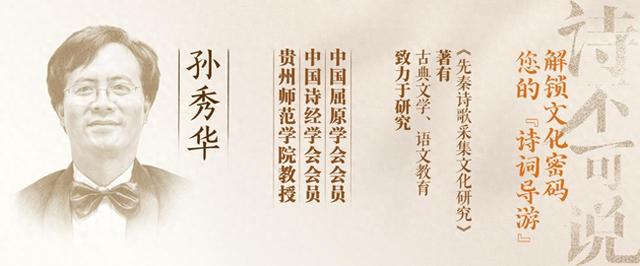 诗不可说
解锁文化密码
您的『诗词导游』
致力于研究
古典文学、语文教育
著有
《先秦诗歌采集文化研究》
中国屈原学会会员
中国诗经学会会员
贵州师范学院教授
孙秀华